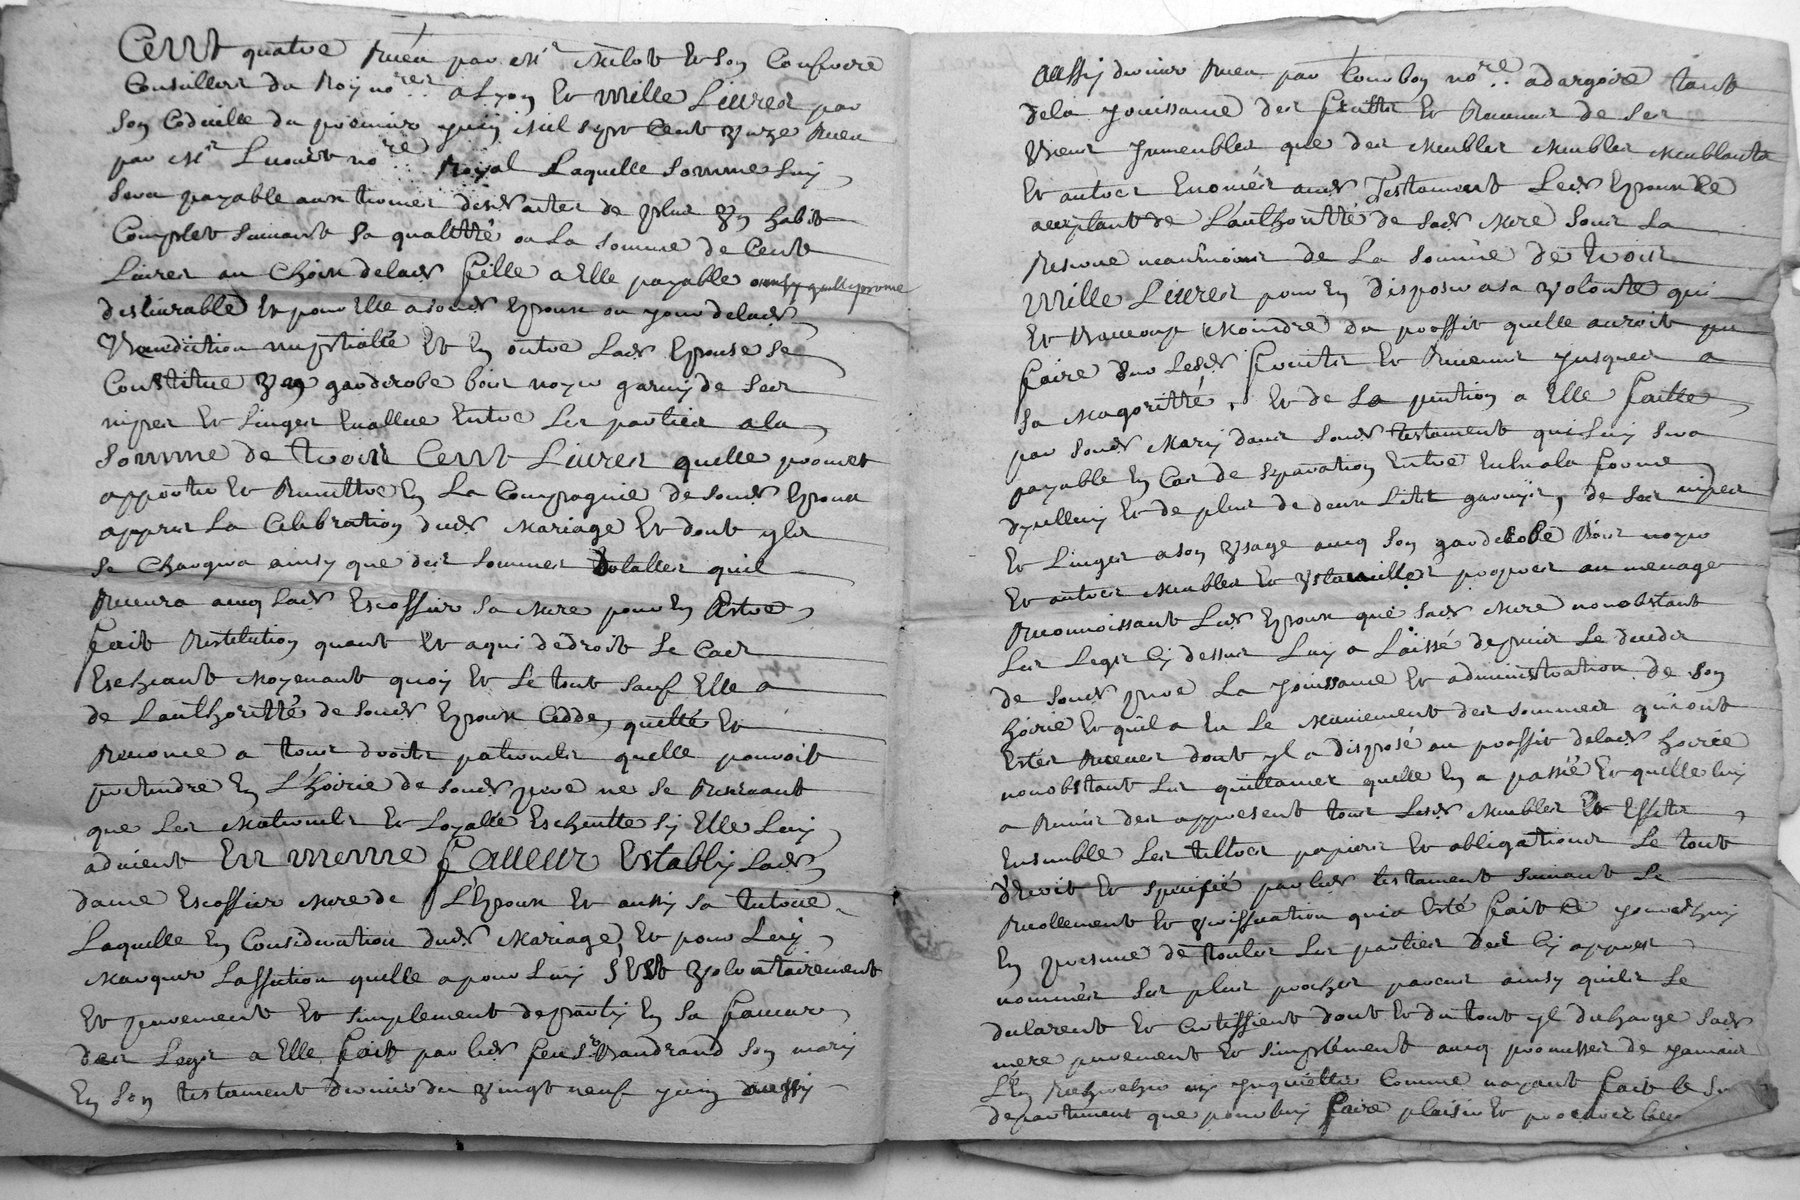 Cent quatre Receu par Mr Milot et son Confrere
Conseillers du Roy no.res a Lyon et mille Livres par
son Codicille du premier juin Mil sept cent unze Receu
par Mr no.re Royal Laquelle somme luy
sera payable aux termes desd actes de plus un habit
Complet suivant sa qualitté ou La somme de Cent
Livres au Choix delad fille a Elle payable
deslivrable et pour Elle a sond Epoux au jour delad
Benediction nuptialle Et En outre Lad Epouse se
Constitue un garderobe bois noyer garny de ses
nipes et Linges Evallue Entre les parties a la
somme de trois Cent Livres quelle promet
apporter et Remettre En La Compagnie de sond Epoux
appres La Celebration dud Mariage Et dont yls
se Chargera ainsy que des sommes dotalles quil
Recevra avec lad Escoffier sa Mere pour En Estre
fait Restitution quant Et a qui de droit Le Cas
Escheant Moyenant quoy Et Le tout sauf Elle a
de Lauthoritté de sond Epoux Cedde, quitté Et
Renonce a tous droits paternels quelle pouvoit
pretendre En L'hoirie de sond pere ne se Reservant
que Les Maternels Et Loyalle Escheutte sy Elle Luy
advient En meme faveur Establi Lad
dame Escoffier Mere de L'Epoux Et aussy sa tutrice
Laquelle En Consideration dud Mariage, Et pour Luy
Marquer Laffection quelle a pour Luy s'Est volontairement
Et purement Et simplement departy En sa faveur
des Legs a Elle fait par led feu Sr Baudrand son mary
En son testament dernier du vingt neuf juin aussy
aussy dernier Receu par no.re a dargoire tant
dela jouissance des fruits Et Revenus de ses
Biens Immeubles que des Meubles Meublants
Et autres Enoncés aud Testament Led Epoux Ce
acceptant de L'authoritté de sad Mere sous La
Reserve neanmoins de La somme de trois
Mille Livres pour En disposer a sa volonte qui
Et Beaucoup Moindre du proffit quelle auroit pu
faire sur Lesd fruits Et Revenus jusques a
sa Magoritté, Et de La pention a Elle faitte
par sond Mary dans sond testament qui Luy sera
payable En Cas de separation Entre En La forme
dycelluy Et de plus de deux Lits garnys, de ses nipes
Et Linges a son usage avec son garderobe Bois noyer
Et autres Meubles Et ustancilles propres au menage
Reconnoissant Led Epoux que sad Mere nonobstant
Les Legs Cy dessus Luy a Laissé depuis Le deceds
de sond pere La jouissance Et administration de son
hoirie Et quil a Eu Le Maniement des sommes qui ont
Estés Receues dont yl a disposé au proffit delad hoirie
nonobstant Les quittances quelle En a passée Et quelle luy
a Remis des appresent tous Lesd Meubles Et Effets
Ensemble Les tiltres papiers Et obligations Le tout
d'Ecrit Et speciffié par led testament suivant Le
Recollement Et veriffication qui a Esté fait Ce jourdhuy
En presence de toutes Les parties Des Cy appres
nommés Les plus proches parens ainsy quils Le
declarent Et Certiffient dont Et du tout yl decharge sad
mere purement Et simplement avec promesses de jamais
L'En Rechercher ny Inquietter Comme nayant fait Le
departement que pour luy faire plaisir Et procurer